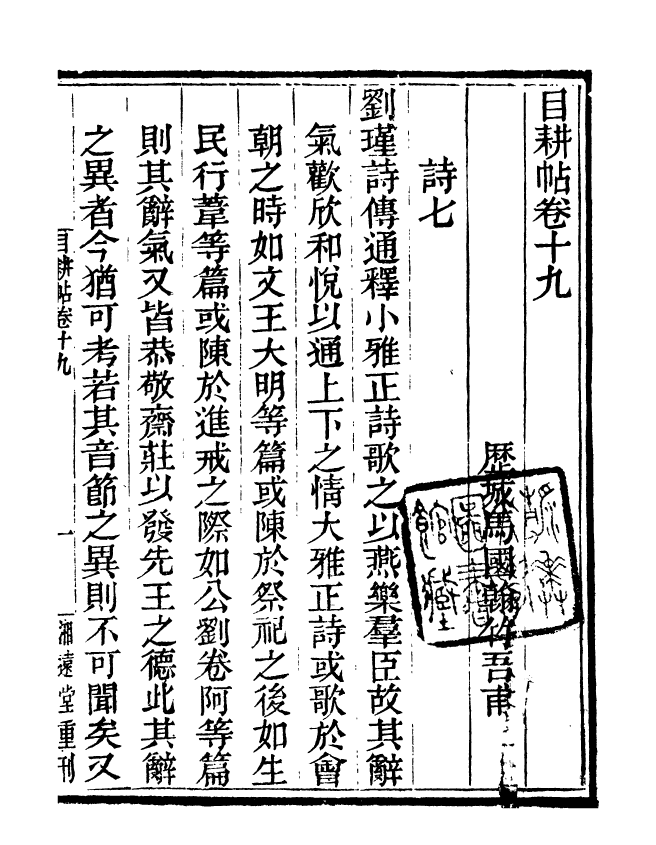 目耕帖卷十九
歷城馬國翰竹吾甫
詩七
劉瑾詩傳通釋小雅正詩歌之以燕樂羣臣故其辭
氣歡欣和悅以通上下之情大雅正詩或歌於會
朝之時如文王大明等篇或陳於祭祀之後如生
民行葦等篇或陳於進戒之際如公劉卷阿等篇
則其辭氣又皆恭敬齋莊以發先王之德此其辭
之異者今猶可考若其音節之異則不可聞矣又
目耕帖卷十九 一 湘遠堂重刊